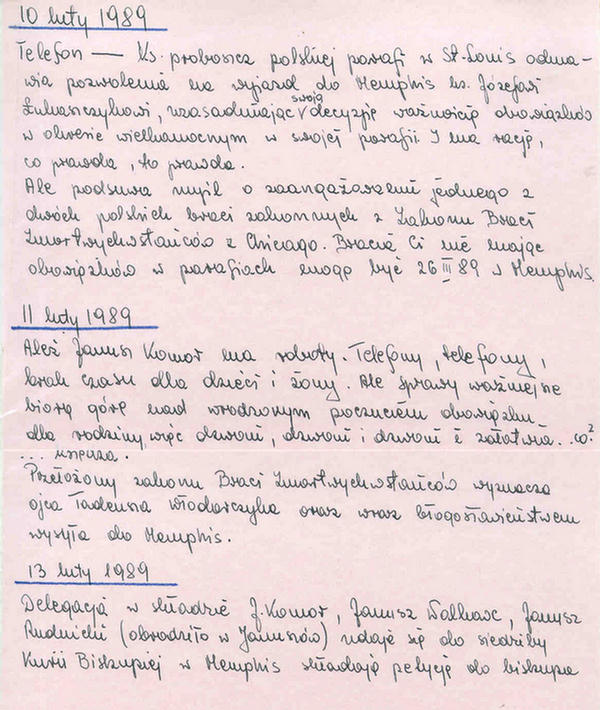 10 luty 1989
Telefon — Ks. proboszcz polskiej parafi w St. Louis odma-
wia pozwolenia na wyjazd do Memphis ks. Józefowi
Łukaszczykowi, uzasadniając swoją decyzję ważnością obowiązków
w okresie wielkanocnym w swojej parafii. I ma rację,
co prawda, to prawda.
Ale podsuwa myśl o zaangażowaniu jednego z
dwóch polskich braci zakonnych z Zakonu Braci
Zmartwychwstańców z Chicago. Bracia Ci nie mając
obowiązków w parafiach mogą być 26 III 89 w Memphis.
11 luty 1989
Ależ Janusz Komor ma roboty. Telefony, telefony,
brak czasu dla dzieci i żony. Ale sprawy ważniejsze
biorą górę nad wrodzonym poczuciem obowiązku
dla rodziny, więc dzwoni, dzwoni i dzwoni i załatwia...co?
... księdza.
Przełożony zakonu Braci Zmartwychwstańców wyznacza
ojca Tadeusza Włodarczyka oraz wraz błogosławieństwem
wysyła do Memphis.
13 luty 1989
Delegacja w składzie J. Komor, Janusz Walkawc, Janusz
Rudnicki (obrodziło w Januszów) udaje się do siedziby
Kurii Biskupiej w Memphis składają petycję do biskupa